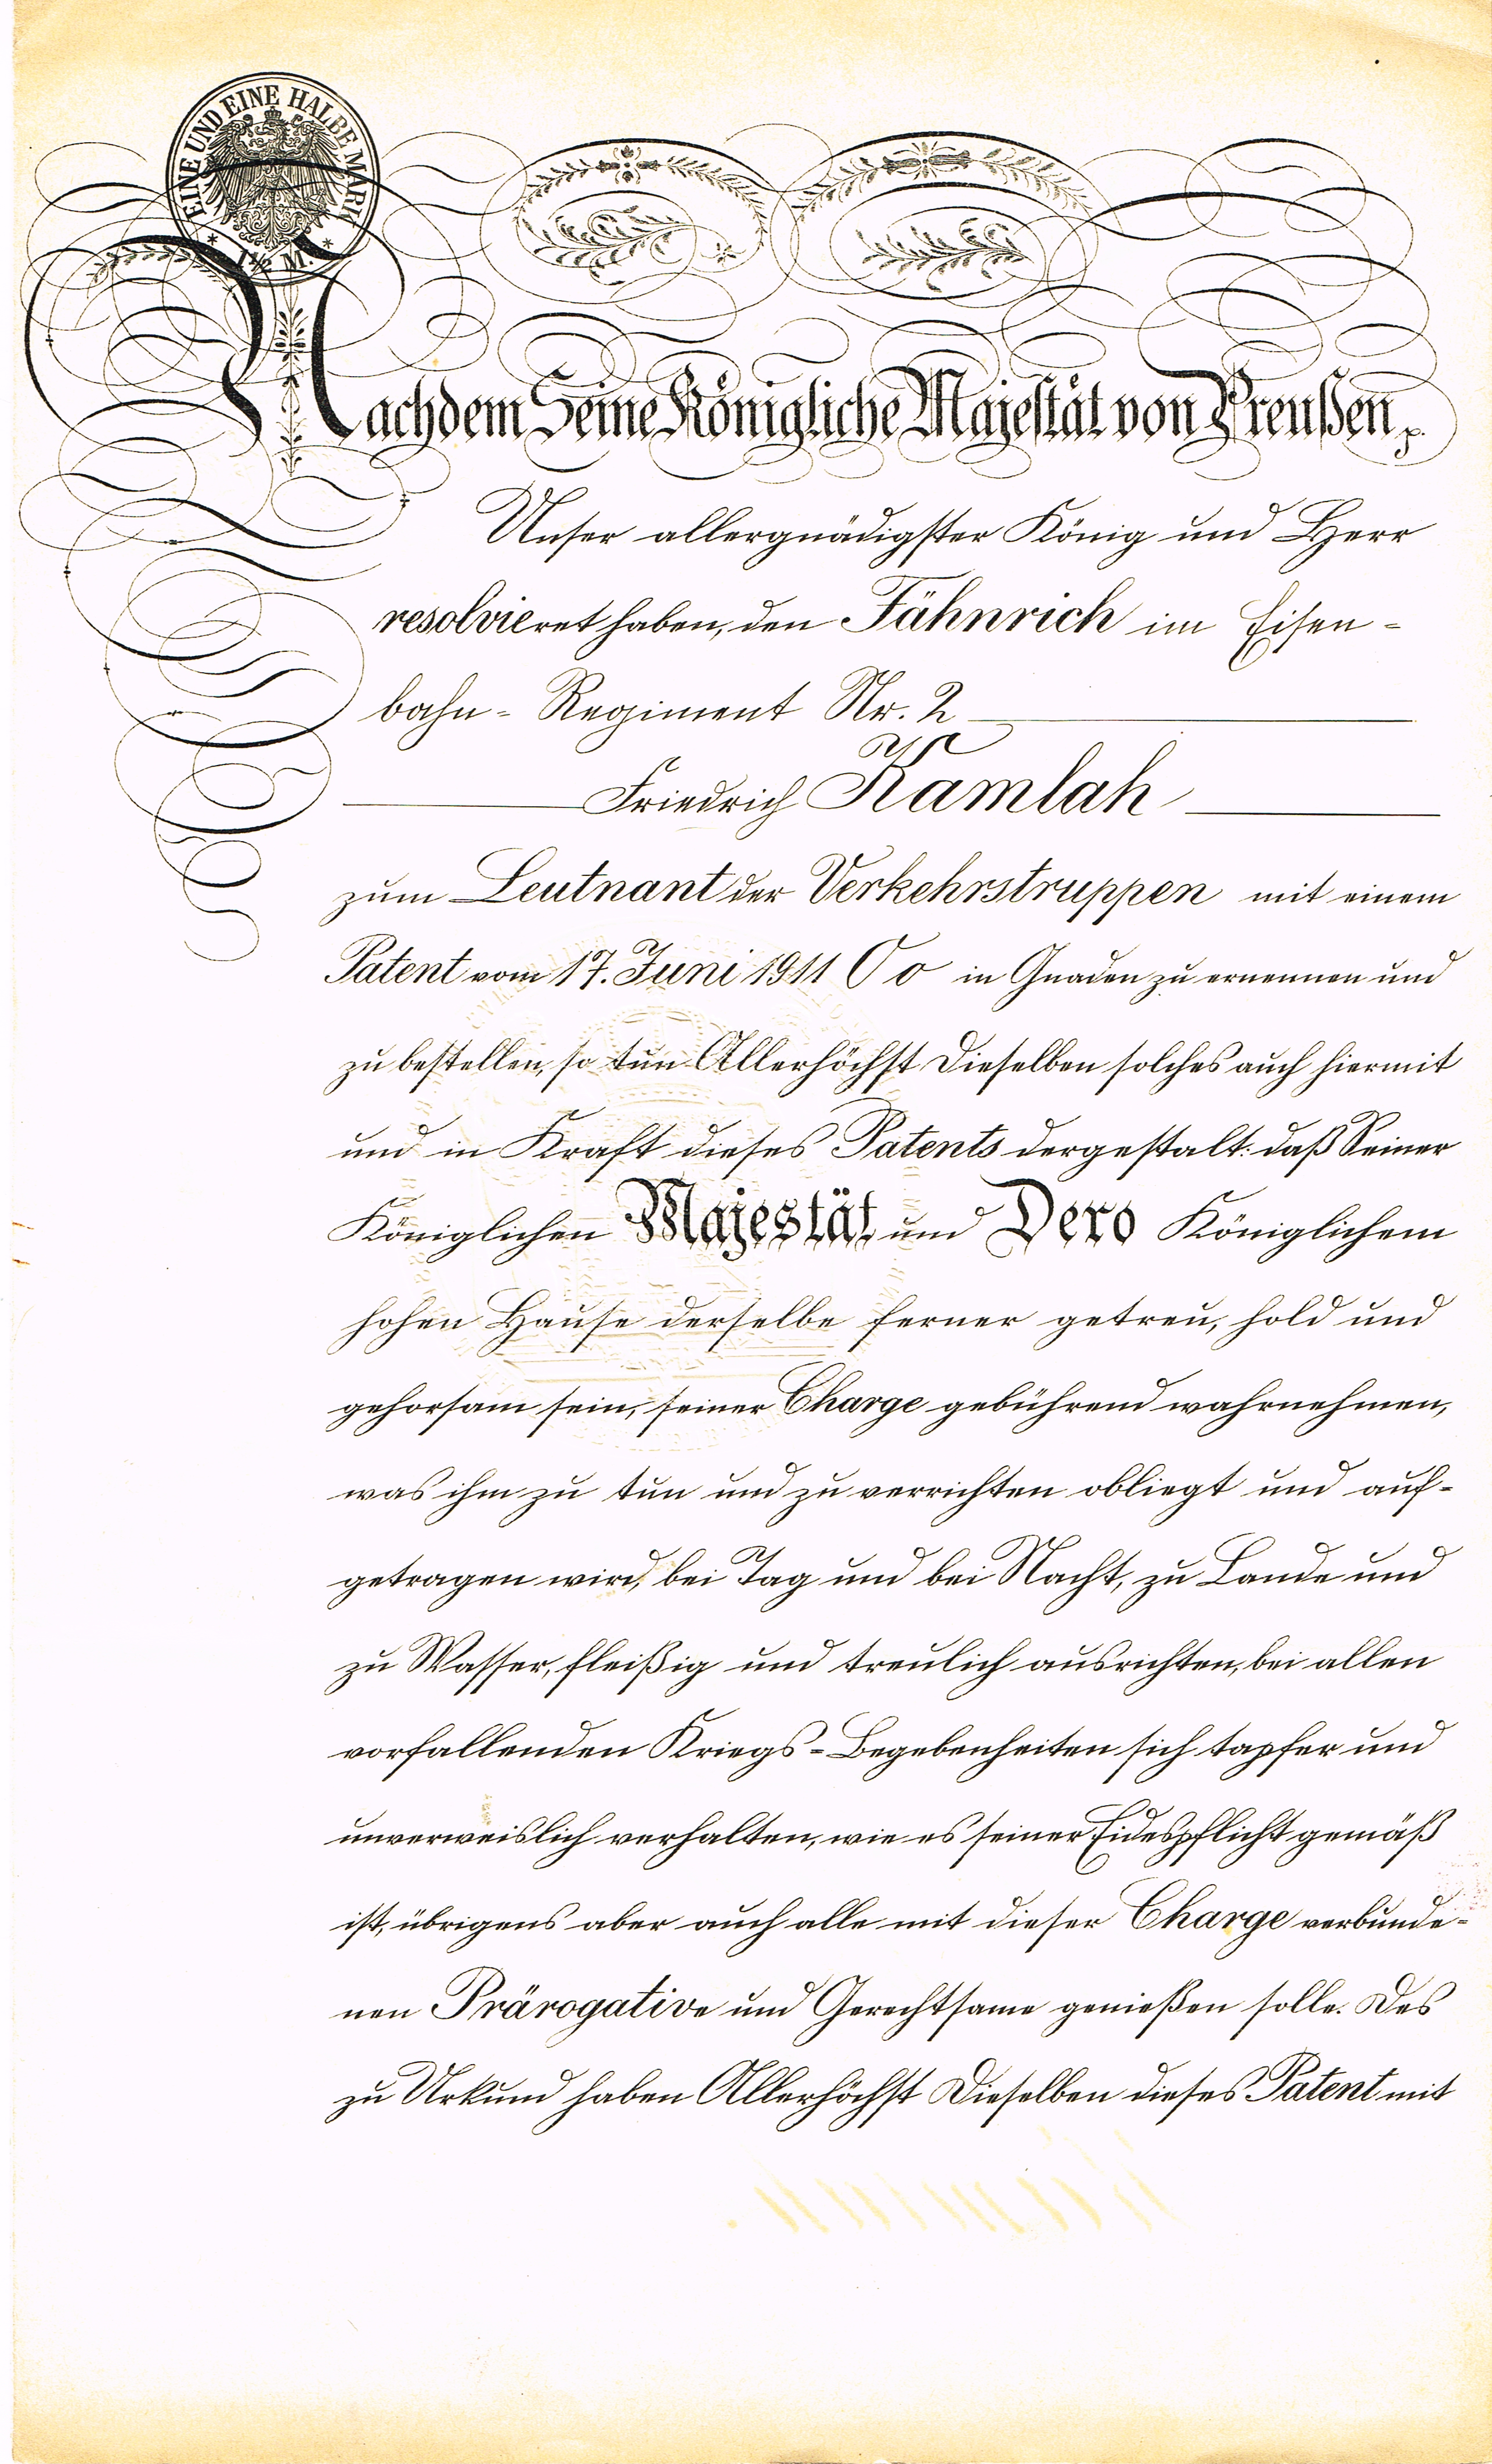 EINE UND EINE HALBE MARK
* 1½ M. *
Nachdem Seine Königliche Majestät von Preußen p.
Unser allergnädigster König und Herr
resolvieret haben, den Fähnrich im Eisen-
bahn-Regiment Nr. 2
Friedrich Kamlah
zum Leutnant der Verkehrstruppen mit einem
Patent vom 17. Juni 1911 O o in Gnaden zu ernennen und
zu bestellen, so tun Allerhöchst Dieselben solches auch hiermit
und in Kraft dieses Patents dergestalt: daß Seiner
Königlichen Majestät und Dero Königlichem
hohen Hause derselbe ferner getreu, hold und
gehorsam sein, seiner Charge gebührend wahrnehmen,
was ihm zu tun und zu verrichten obliegt und auf-
getragen wird, bei Tag und bei Nacht, zu Lande und
zu Wasser, fleißig und treulich ausrichten, bei allen
vorfallenden Kriegs-Begebenheiten sich tapfer und
unverweislich verhalten, wie es seiner Eidespflicht gemäß
ist, übrigens aber auch alle mit dieser Charge verbunde-
nen Prärogative und Gerechtsame genießen solle. Des
zu Urkund haben Allerhöchst Dieselben dieses Patent mit